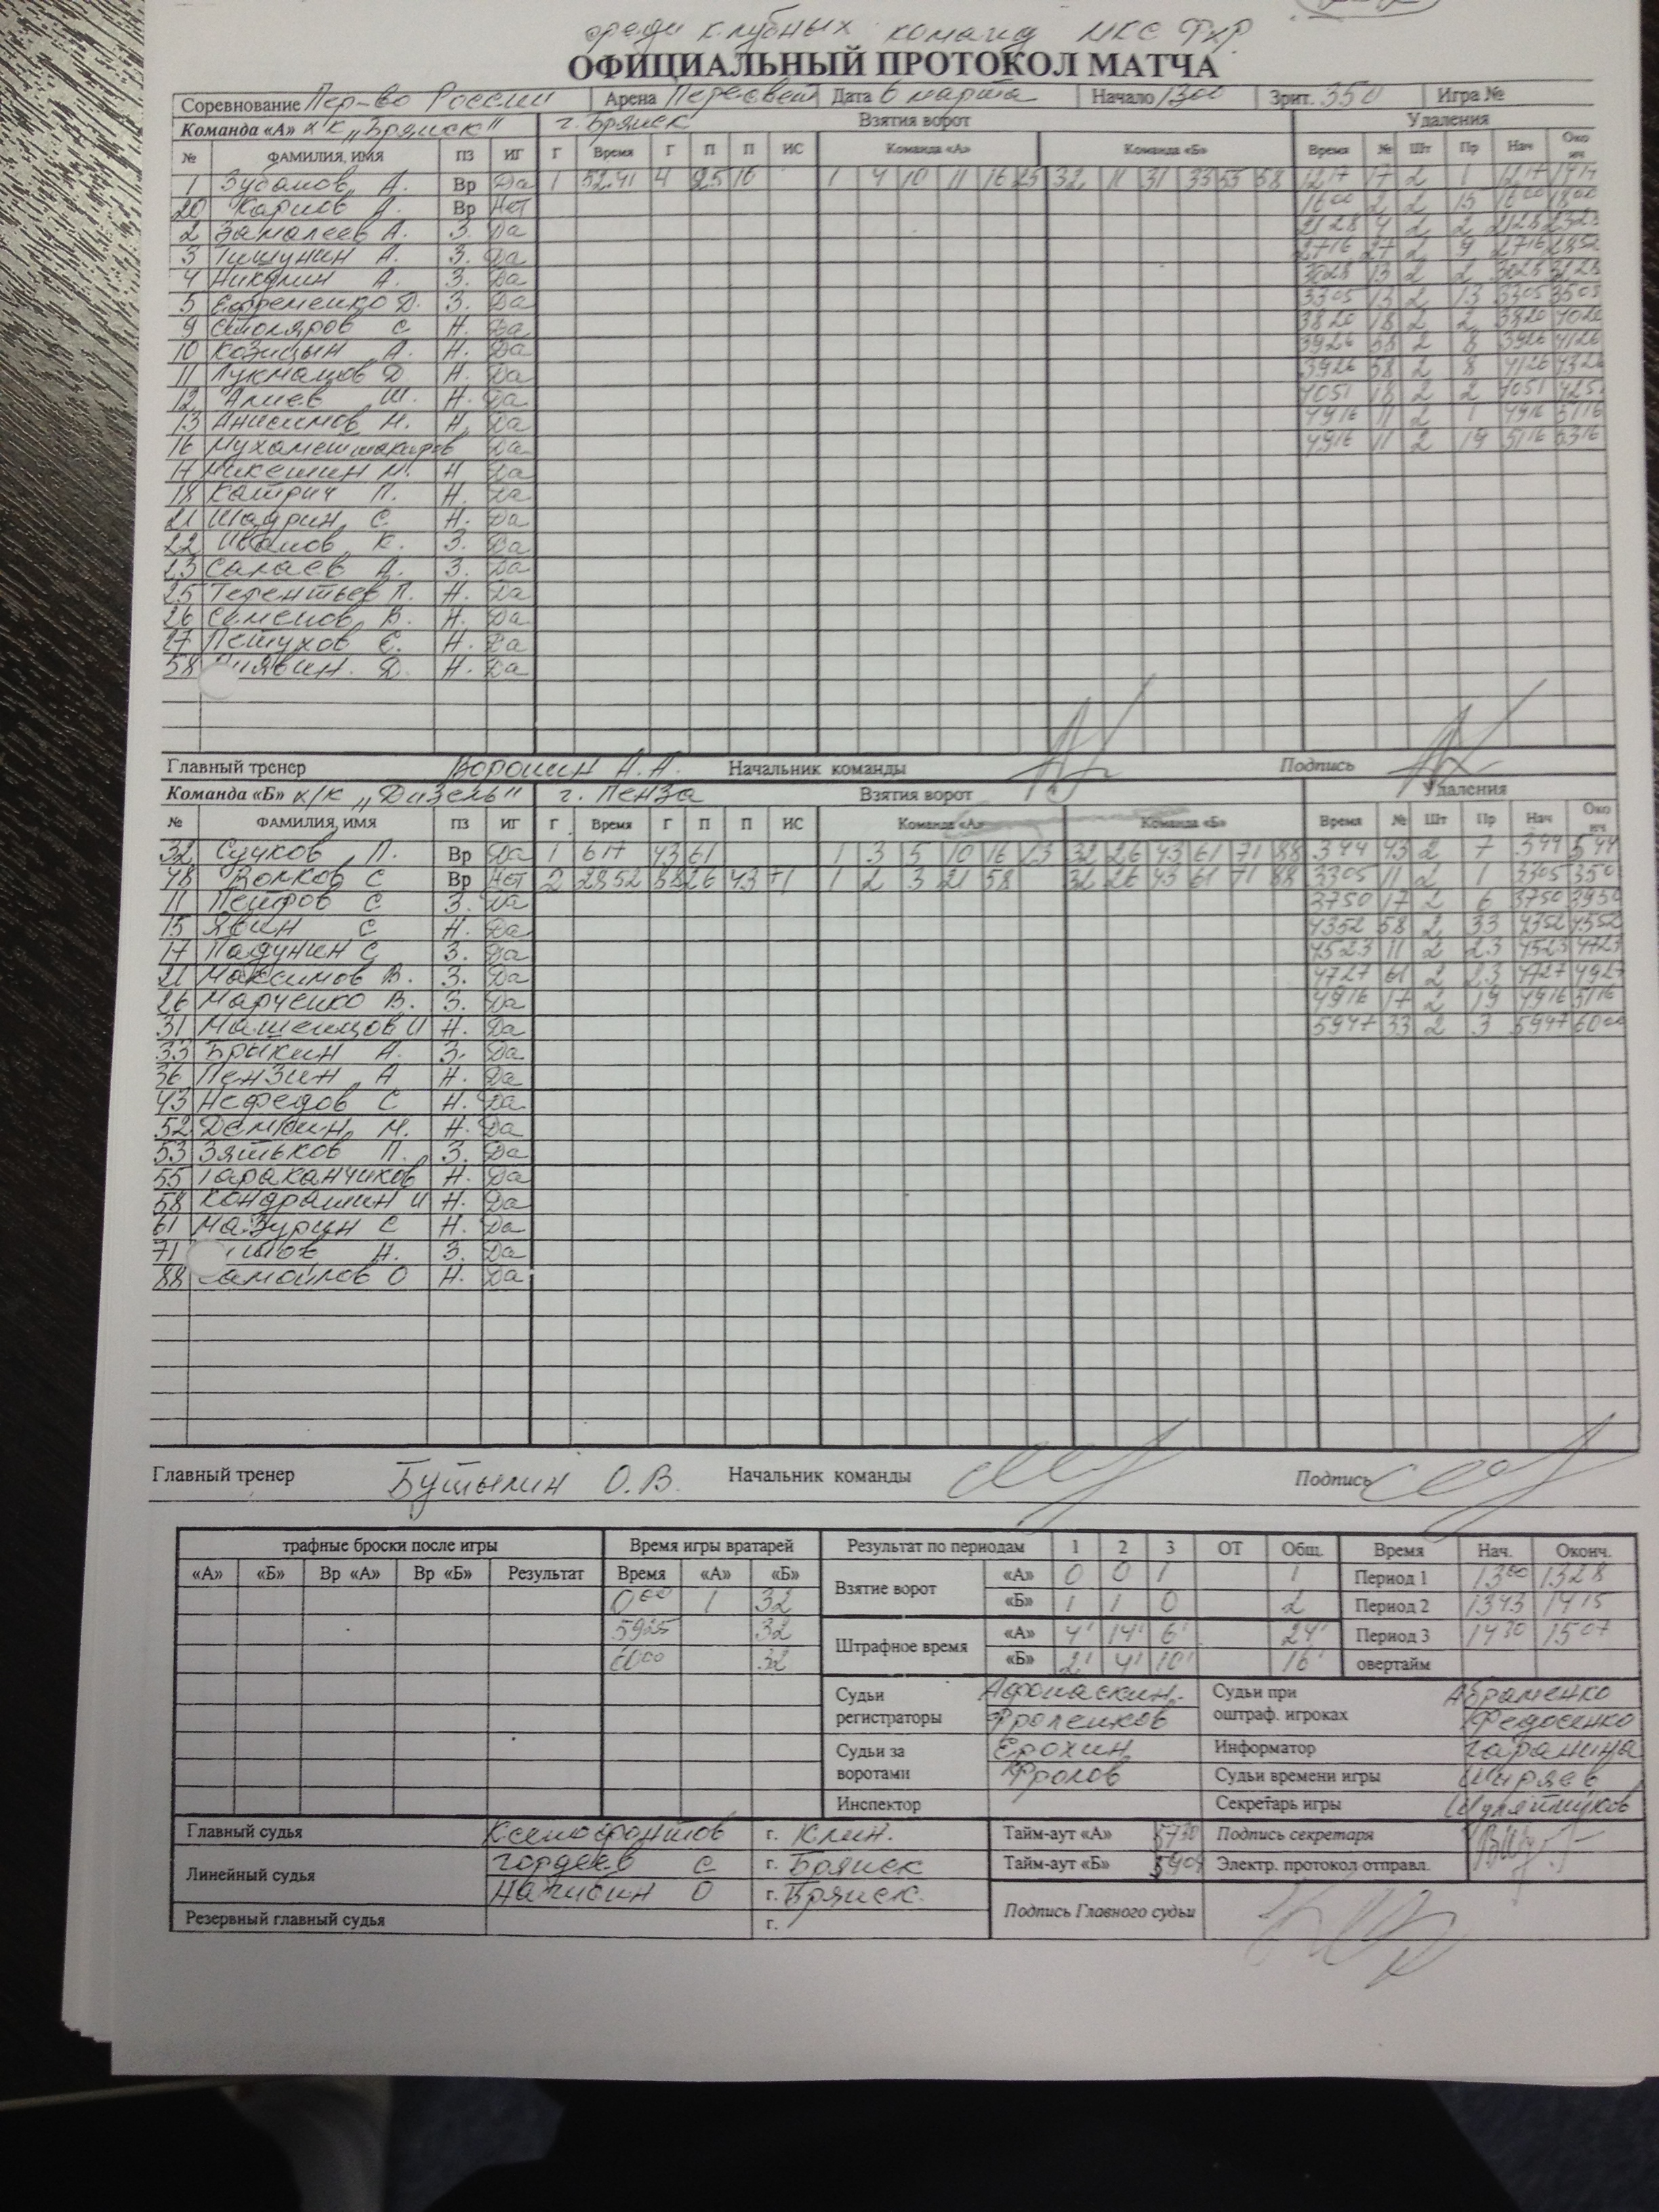 среди клубных команд МКС ФХР
ОФИЦИАЛЬНЫЙ ПРОТОКОЛ МАТЧА
Соревнование Пер-во России Арена Пересвет Дата 6 марта Начало 13 00 Зрит. 350 Игра №
Команда «А» х/к „Брянск" г. Брянск Взятия ворот Удаления
№ ФАМИЛИЯ, ИМЯ ПЗ ИГ Г Время Г П П ИС Команда «А» Команда «Б» Время № Шт Пр Нач Око нч
1 Зубанов А. Вр Да 1 52.41 4 25 16 1 4 10 11 16 25 32 11 31 33 55 58 12 17 17 2 1 12 17 14 17
20 Карпов А. Вр Нет 16 00 2 2 15 16 00 18 00
2 Замалеев А. З. Да 21 28 4 2 2 21 28 23 28
3 Тишунин А. З. Да 27 16 27 2 9 27 16 28 52
4 Никулин А. З. Да 30 28 13 2 2 30 28 31 28
5 Ефременко Д. З. Да 33 05 13 2 13 33 05 35 05
9 Столяров С Н. Да 38 20 18 2 2 38 20 40 20
10 Козицын А. Н. Да 39 26 58 2 8 39 26 41 26
11 Лукманов Д. Н. Да 39 26 58 2 8 41 26 43 26
12 Алиев Ш. Н. Да 40 51 18 2 2 40 51 42 51
13 Анисимов Н. Н. Да 49 16 11 2 1 49 16 51 16
16 Да 49 16 11 2 19 51 16 53 16
17 Микешин М. Н Да
18 Катрич П. Н. Да
21 Шадрин С. Н. Да
22 Иванов К. З. Да
23 Салаев А. З. Да
25 Терентьев П. Н. Да
26 Семенов В. Н. Да
27 Петухов Е. Н. Да
58 Д. Н. Да
Главный тренер Воронин А.А. Начальник команды Подпись
Команда «Б» х/к „Дизель" г. Пенза Взятия ворот Удаления
№ ФАМИЛИЯ, ИМЯ ПЗ ИГ Г Время Г П П ИС Команда «А» Команда «Б» Время № Шт Пр Нач Око нч
32 Сучков П. Вр Да 1 6 17 43 61 1 3 5 10 16 23 32 26 43 61 71 88 3 44 43 2 7 3 44 5 44
48 Волков С Вр Нет 2 28 52 88 26 43 71 1 2 3 21 58 32 26 43 61 71 88 33 05 11 2 1 33 05 35 05
11 Петров С З. Да 37 50 17 2 6 37 50 39 50
15 Явин С Н. Да 43 52 58 2 33 43 52 45 52
17 Падунин С З. Да 45 23 11 2 23 45 23 47 23
21 Максимов В. З. Да 47 27 61 2 23 47 27 49 27
26 Марченко В. З. Да 49 16 17 2 19 49 16 51 16
31 Машенцов И Н. Да 59 47 33 2 3 59 47 60 00
33 Брыкин А. З. Да
36 Пензин А Н. Да
43 Нефедов С Н. Да
52 Демкин М. Н. Да
53 Зятьков П. З. Да
55 Тараканчиков Н. Да
58 Кондрашин И Н. Да
61 Мазурин С Н. Да
71 Н. З. Да
88 Самойлов О Н. Да
Главный тренер Бутылин О.В. Начальник команды Подпись
трафные броски после игры Время игры вратарей Результат по периодам 1 2 3 ОТ Общ. Время Нач. Оконч.
«А» «Б» Вр «А» Вр «Б» Результат Время «А» «Б» Взятие ворот «А» 0 0 1 1 Период 1 13 00 13 28
0 00 1 32 «Б» 1 1 0 2 Период 2 13 43 14 15
59 25 32 Штрафное время «А» 4' 14' 6' 24' Период 3 14 30 15 07
60 00 32 «Б» 2' 4' 10' 16' овертайм
Судьи регистраторы Афонаскин Фроленков Судьи при оштраф. игроках Абраменко Федосенко
Судьи за воротами Ерохин Фролов Информатор Гаранина
Судьи времени игры Ширяев
Инспектор Секретарь игры Шуляйчуков
Главный судья Ксенофонтов г. Клин. Тайм-аут «А» 57 30 Подпись секретаря
Линейный судья Гордеев С г. Брянск Тайм-аут «Б» 59 09 Электр. протокол отправл.
О г. Брянск. Подпись Главного судьи
Резервный главный судья г.